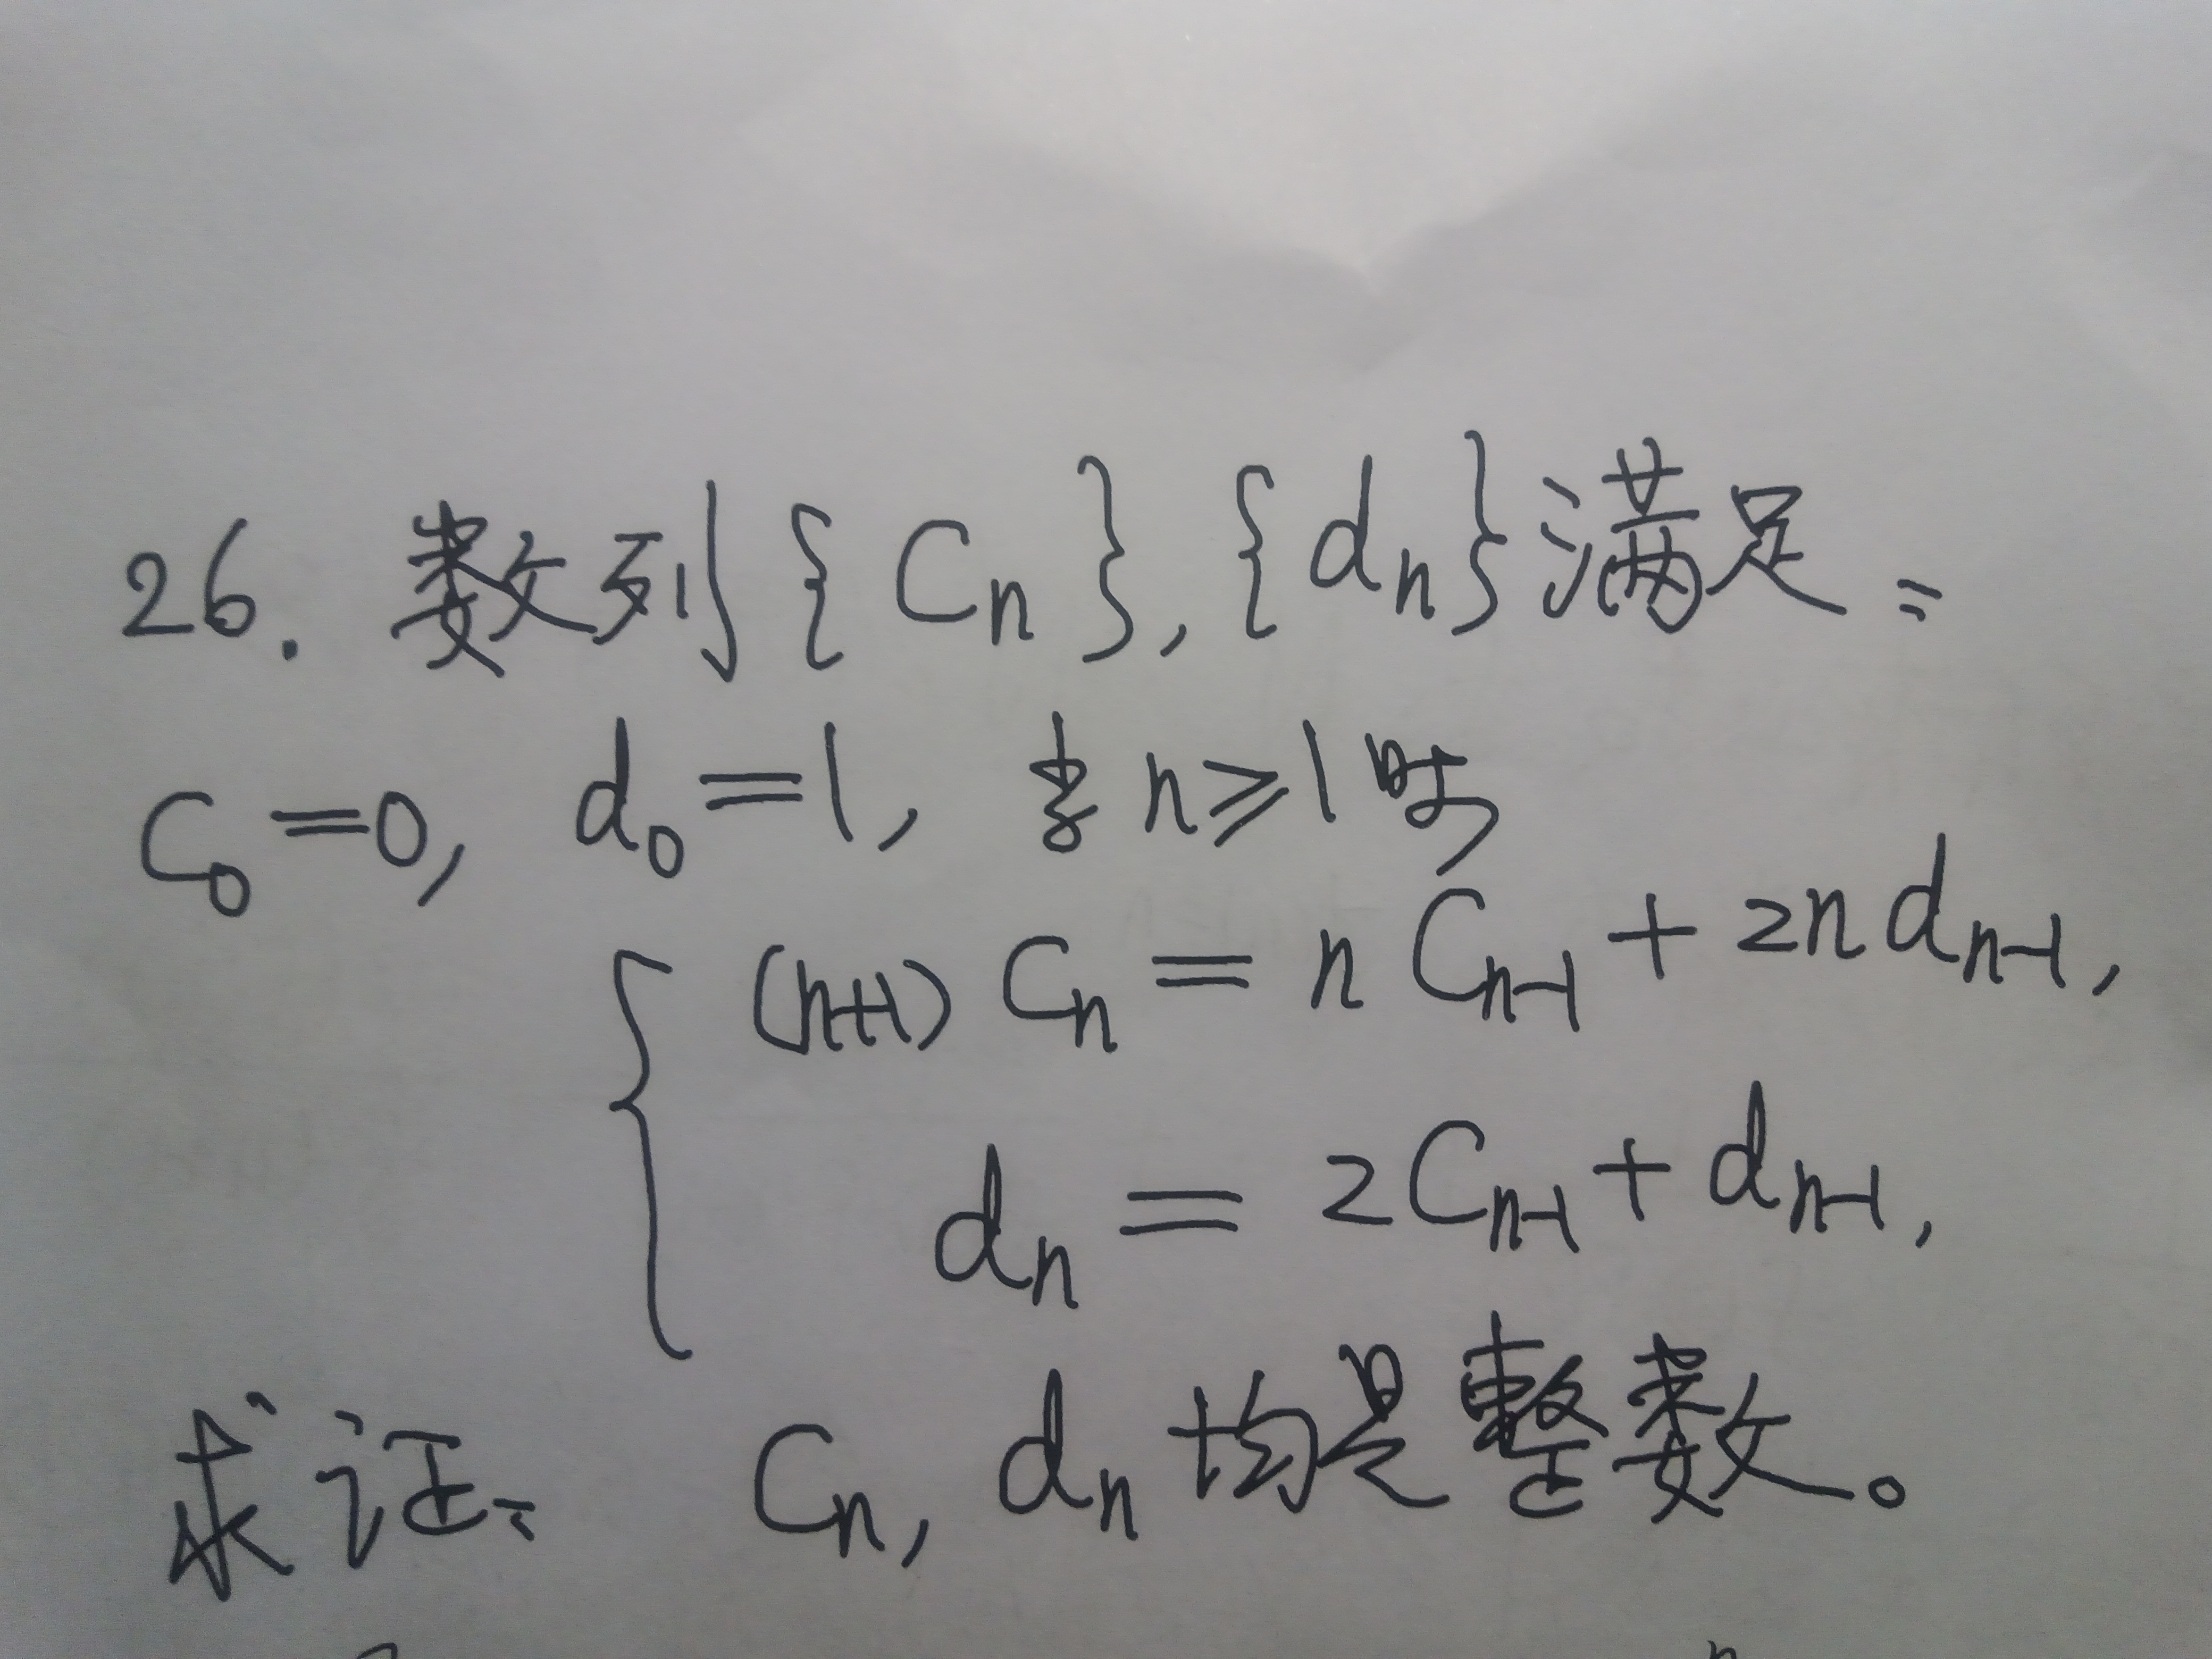 26. 数列{Cn}, {dn}满足:
C₀=0, d₀=1, 当 n≥1时
(n+1) Cn = n Cn-1 + 2n dn-1,
dn = 2Cn-1 + dn-1,
求证: Cn, dn 均是整数。